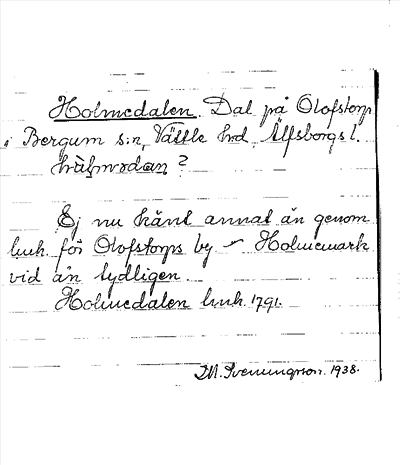 Holmedalen. Dal på Olofstorp
i Bergum s:n, Vättle hd, Älfsborgs l.
Ej nu känt annat än genom
luk. för Olofstorps by – Holmemark
vid ån tydligen
Holmedalen luk. 1791.
J.M. Svenungsson. 1938.